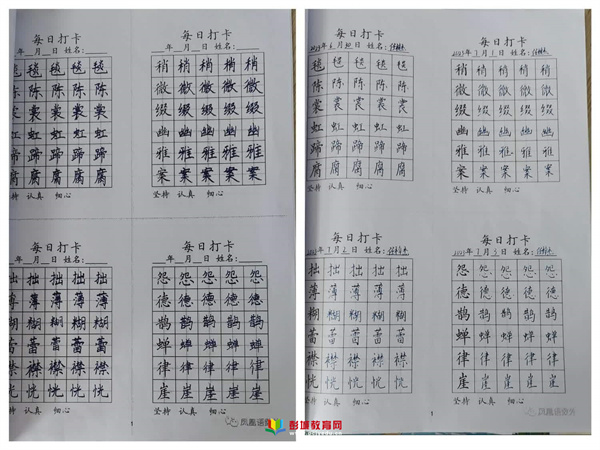 每日打卡
年 月 日 姓名:
毯 毯 毯
陈 陈 陈
裳 裳 裳
虹 虹 虹
蹄 蹄 蹄
腐 腐 腐
坚持 认真 细心
每日打卡
年 月 日 姓名:
稍 稍 稍 稍 稍
微 微 微 微 微
缀 缀 缀 缀 缀
幽 幽 幽 幽 幽
雅 雅 雅 雅 雅
案 案 案 案 案
坚持 认真 细心
每日打卡
年 月 日 姓名:
拙 拙 拙 拙
薄 薄 薄 薄
糊 糊 糊 糊
蕾 蕾 蕾 蕾
襟 襟 襟 襟
恍 恍 恍 恍
坚持 认真 细心
每日打卡
年 月 日 姓名:
怨 怨 怨 怨 怨
德 德 德 德 德
鹊 鹊 鹊 鹊 鹊
蝉 蝉 蝉 蝉 蝉
律 律 律 律 律
崖 崖 崖 崖 崖
坚持 认真 细心
1
凤凰语
每日打卡
2023年6月30日 姓名:
毯 毯 毯 毯 毯
陈 陈 陈 陈 陈
裳 裳 裳 裳 裳
虹 虹 虹 虹 虹
蹄 蹄 蹄 蹄 蹄
腐 腐 腐 腐 腐
坚持 认真 细心
每日打卡
2023年7月1日 姓名:
稍 稍 稍 稍 稍
微 微 微 微 微
缀 缀 缀 缀 缀
幽 幽 幽 幽 幽
雅 雅 雅 雅 雅
案 案 案 案 案
坚持 认真 细心
每日打卡
2023年7月2日 姓名:
拙 拙 拙 拙 拙
薄 薄 薄 薄 薄
糊 糊 糊 糊 糊
蕾 蕾 蕾 蕾 蕾
襟 襟 襟 襟 襟
恍 恍 恍 恍 恍
坚持 认真 细心
每日打卡
2023年7月3日 姓名:
怨 怨 怨 怨 怨
德 德 德 德 德
鹊 鹊 鹊 鹊 鹊
蝉 蝉 蝉 蝉 蝉
律 律 律 律 律
崖 崖 崖 崖 崖
坚持 认真 细心
1
凤凰语
彭城教育网